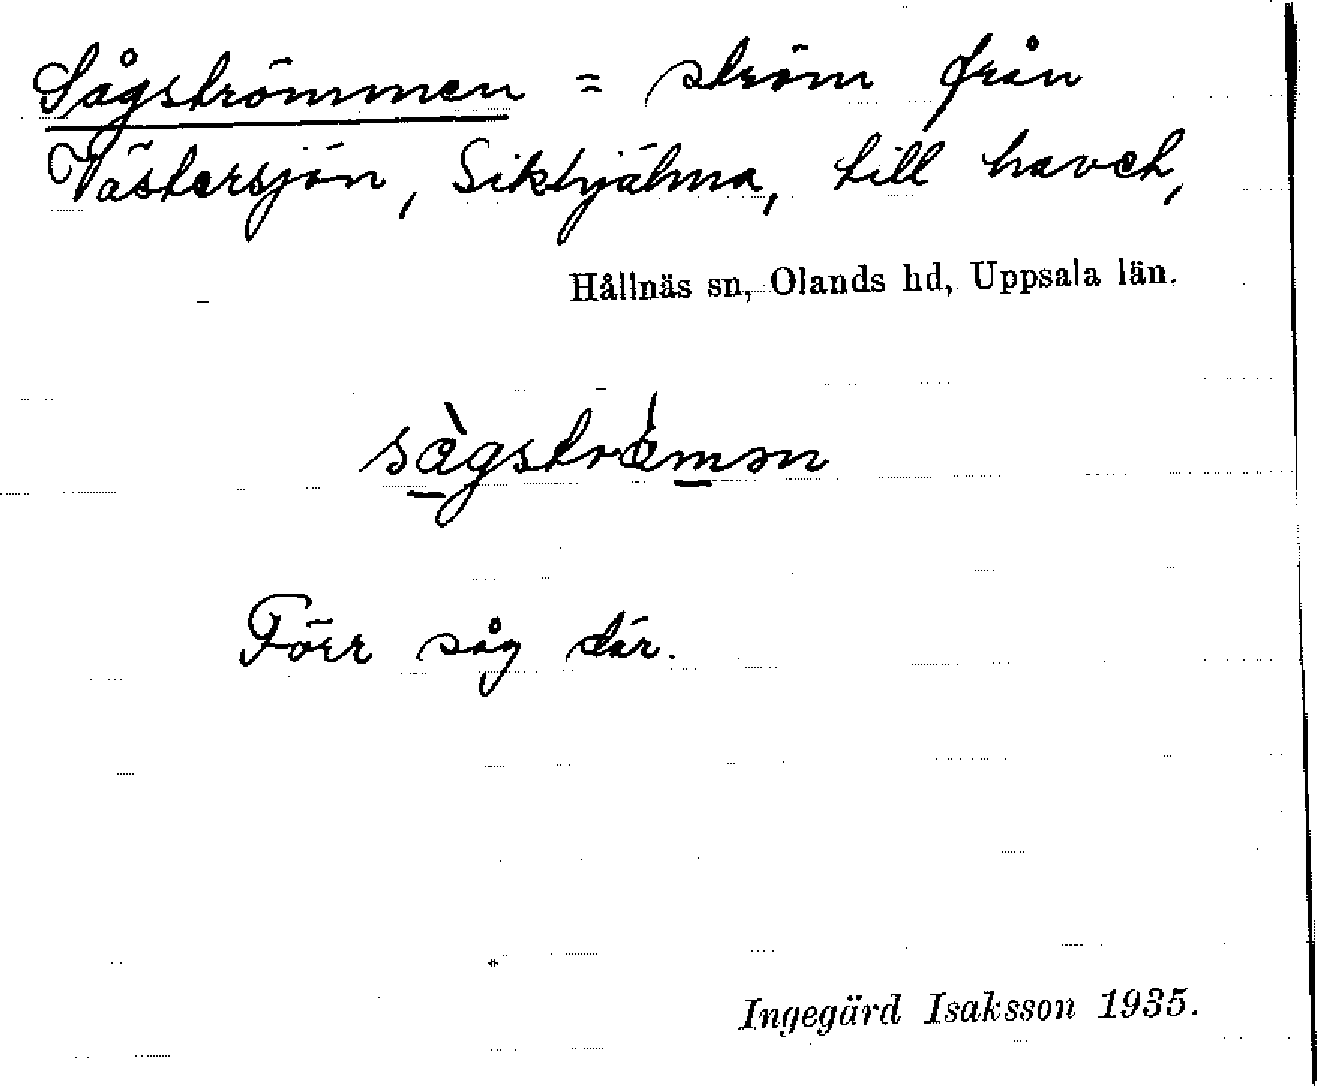 Sågströmmen = ström från
Västersjön, Sikhjälma, till havet,
Hållnäs sn, Olands hd, Uppsala län.
sàgstrǿmən
Förr såg där.
Ingegärd Isaksson 1935.